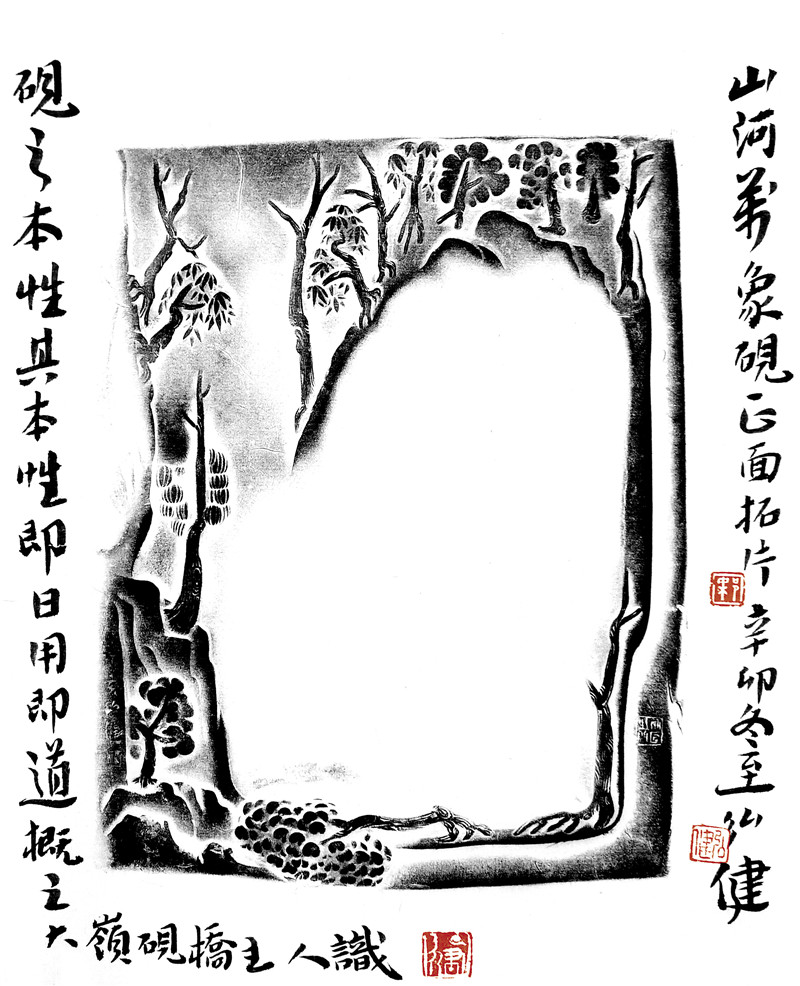 山河萬象硯正面拓片 辛卯冬至弘健
硯之本性其本性即日用即道概之大
嶺硯橋主人識